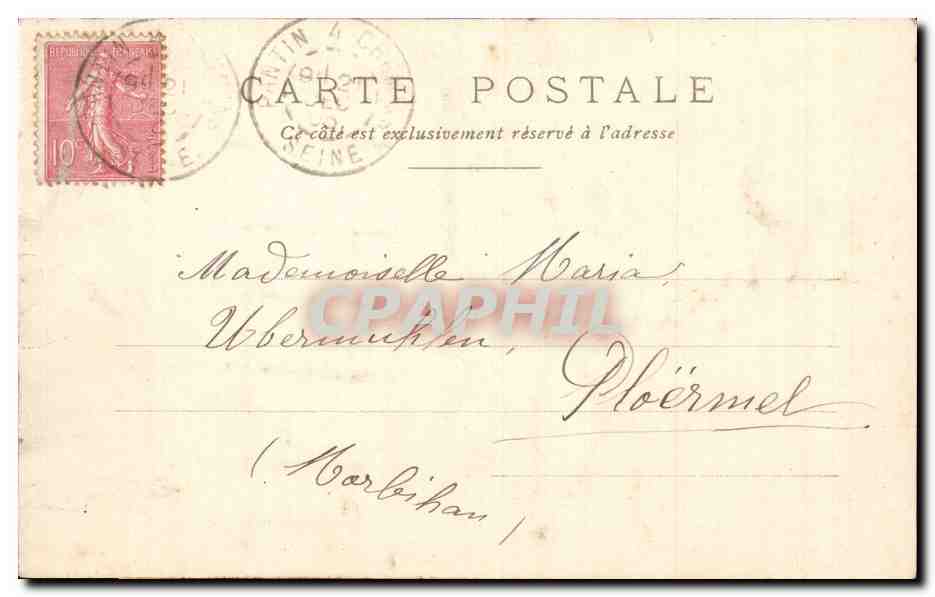 REPUBLIQUE FRANÇAISE
10c
PANTIN 4 CH
SEINE
CARTE POSTALE
Ce côté est exclusivement réservé à l'adresse
Mademoiselle Maria
CPAPHIL
Ubermuhlen,
Ploërmel
(Morbihan)